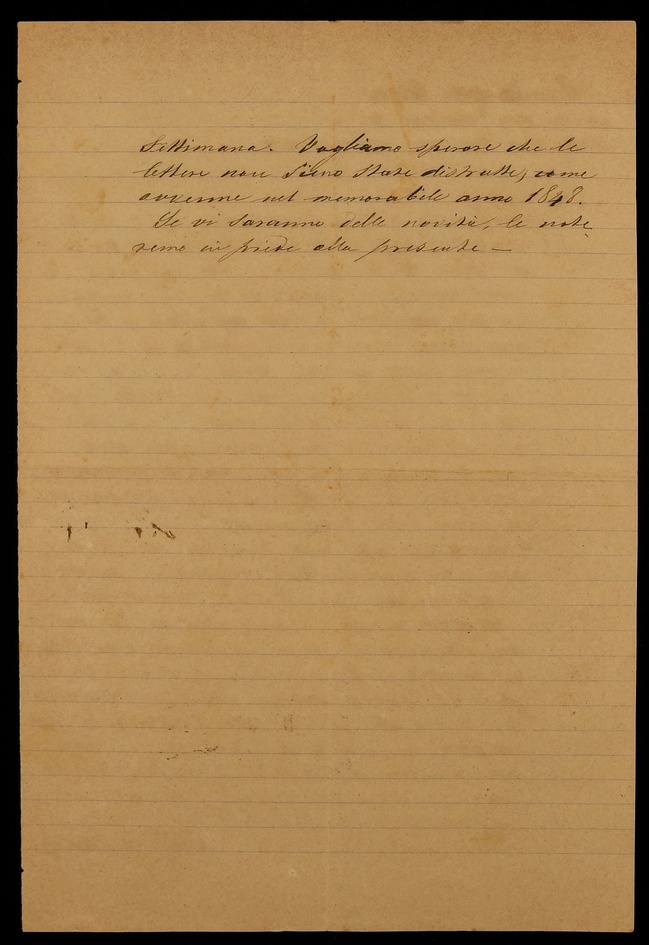 Settimana. Vogliamo sperare che le
lettere non sieno state distrutte, come
avvenne nel memorabile anno 1848.
Se vi saranno delle novità, le note
remo in piede alla presente —